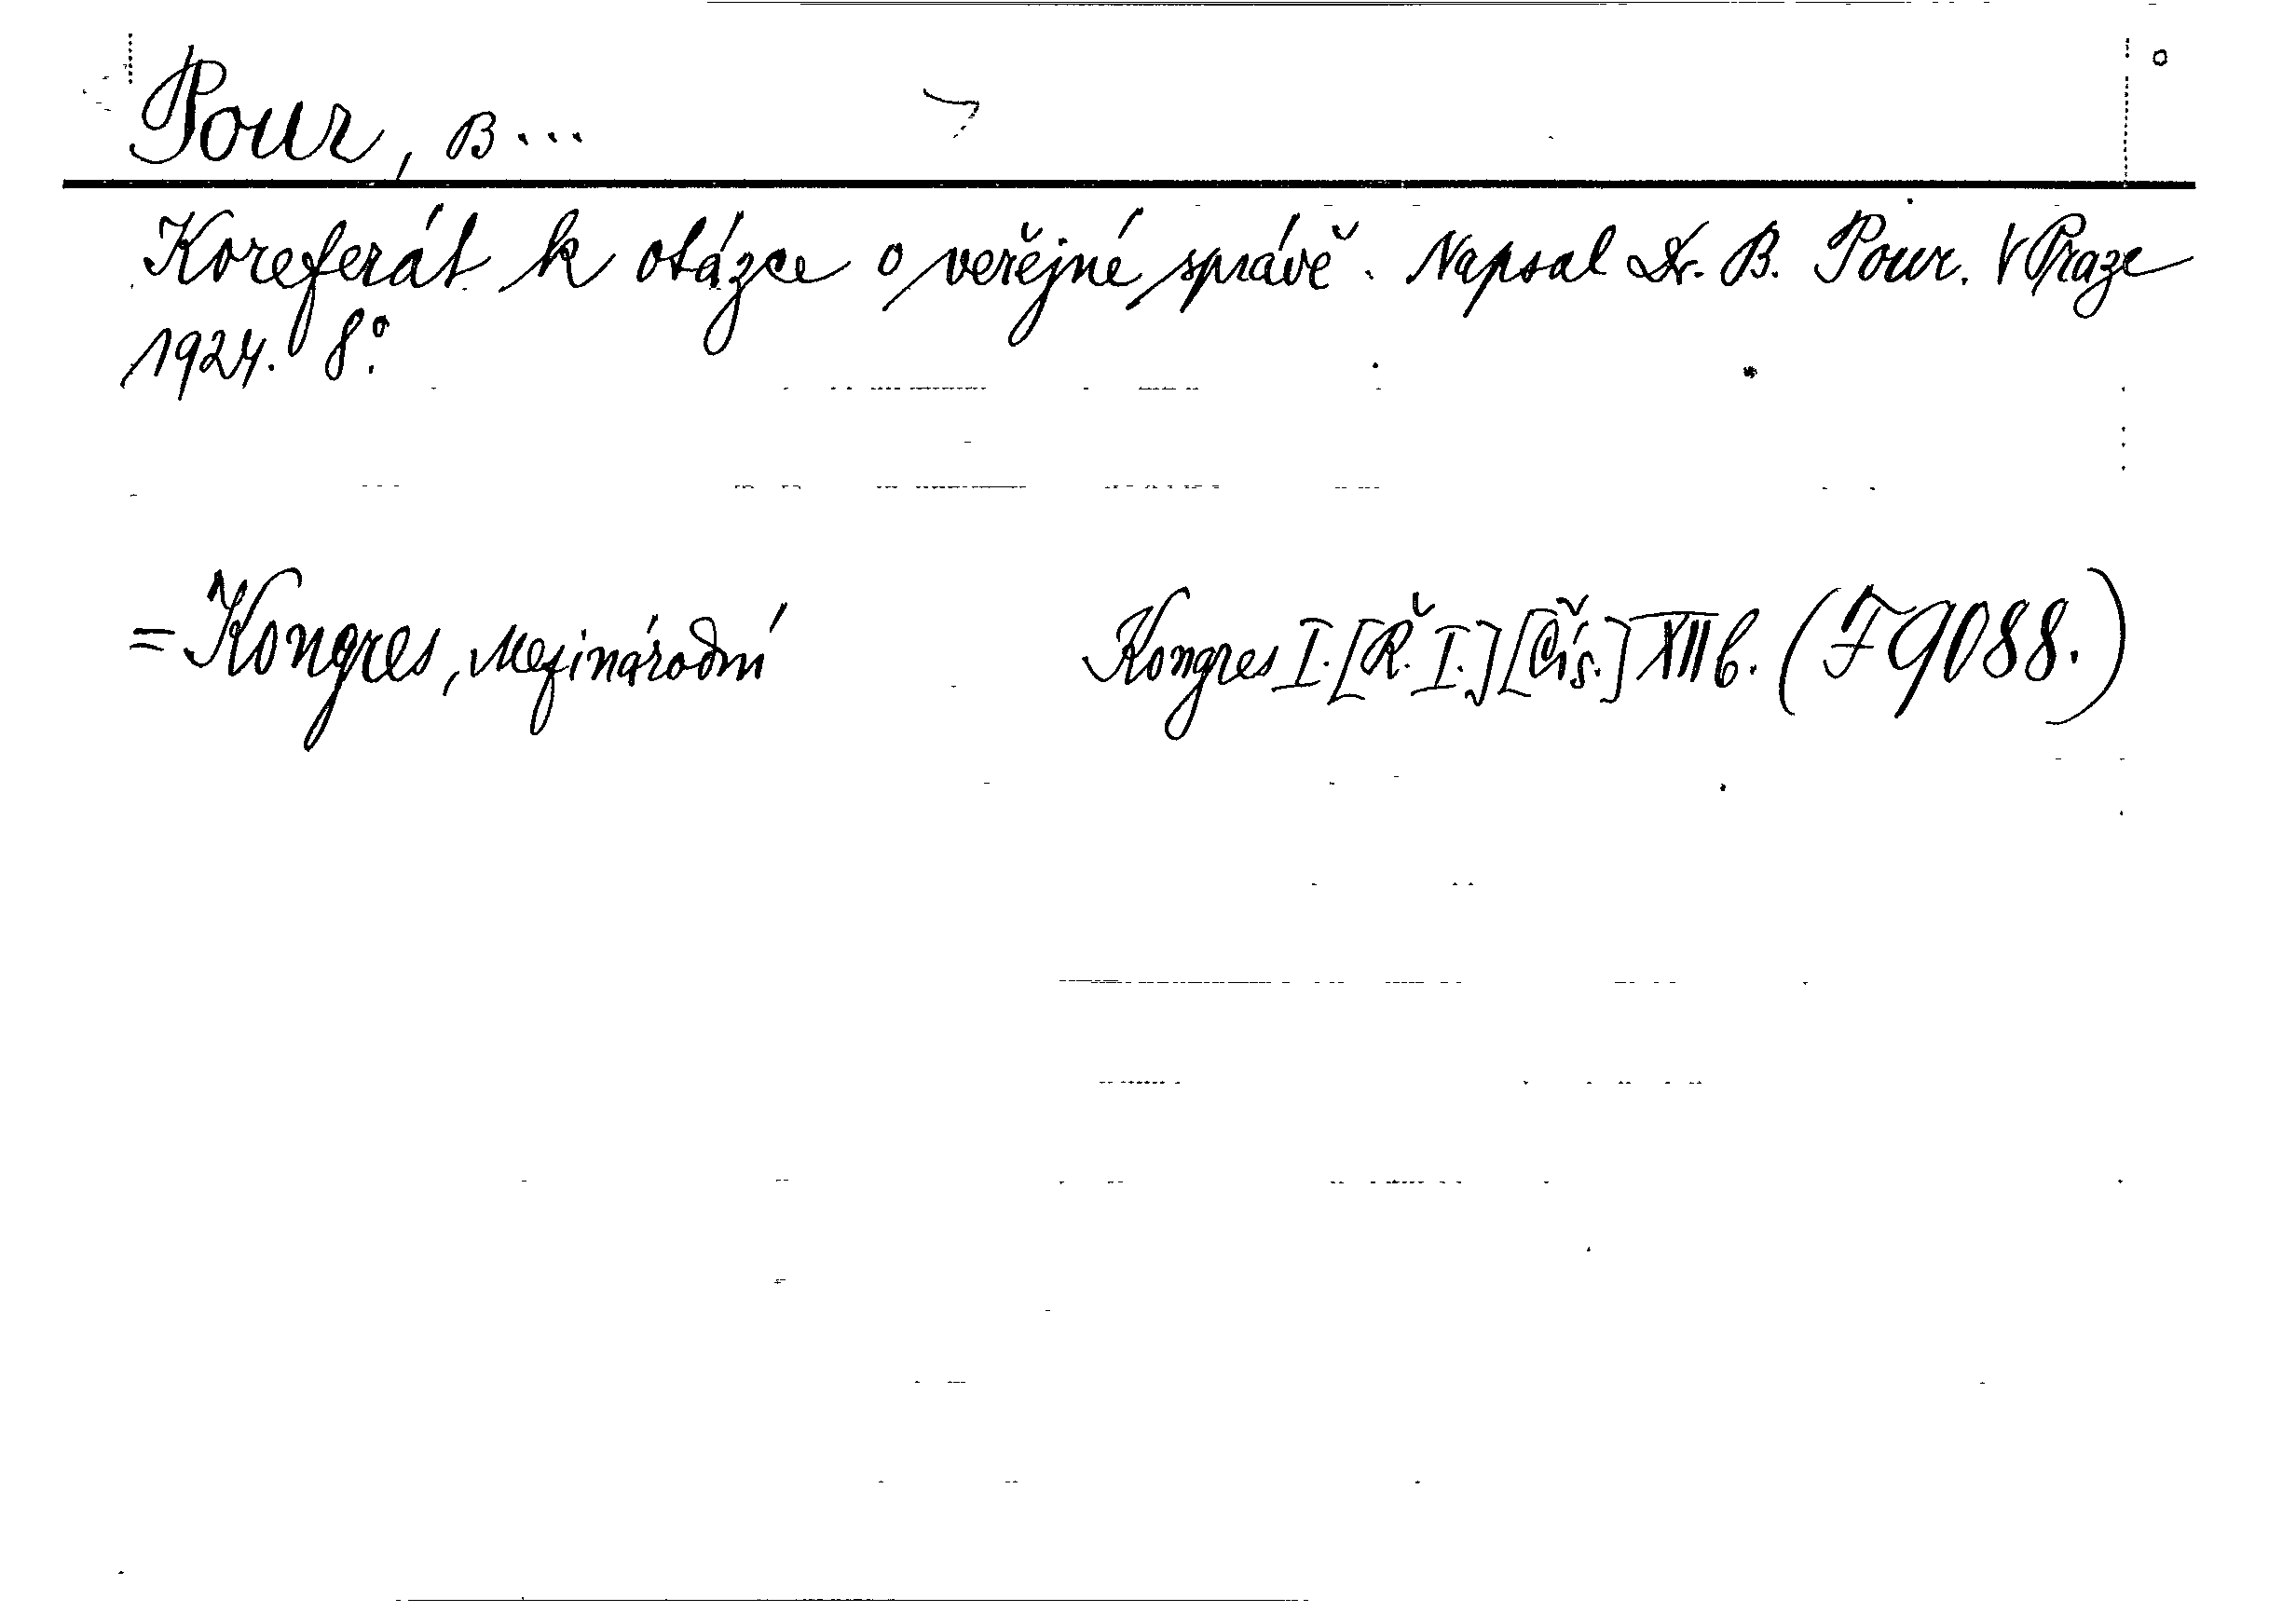 Pour, B...
Koreferát k otázce o veřejné správě. Napsal Dr. B. Pour. V Praze
1924. 8°.
= Kongres, Mezinárodní Kongres I. [Ř. I.] [Čís.] XII b. (F 9088.)